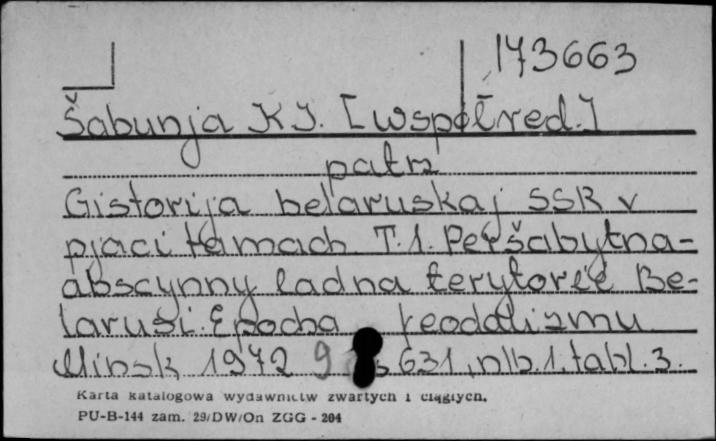 173663
Šabunja K I. [współred.]
patrz
Gistorija belaruskaj SSR v
pjaci tamach T.1. Peršabytna-
abscynny ladna terytorii Be-
larusi. Epocha feodalizmu
Minsk 1972 s 631, nlb. 1, tabl. 3.
Karta katalogowa wydawnictw zwartych i ciągłych.
PU-B-144 zam. 29/DW/On ZGG - 204